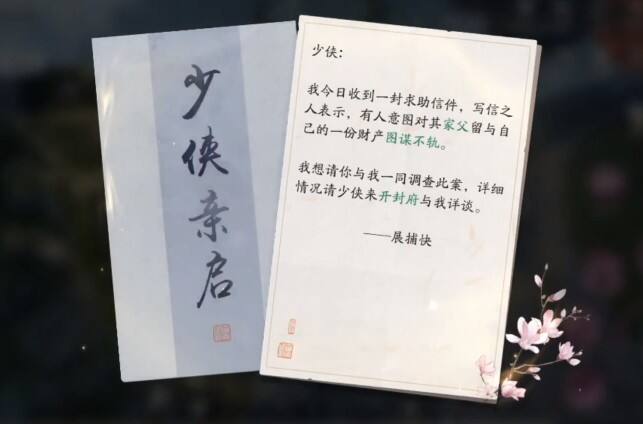 少侠亲启
少侠：
我今日收到一封求助信件，写信之
人表示，有人意图对其家父留与自
己的一份财产图谋不轨。
我想请你与我一同调查此案，详细
情况请少侠来开封府与我详谈。
——展捕快